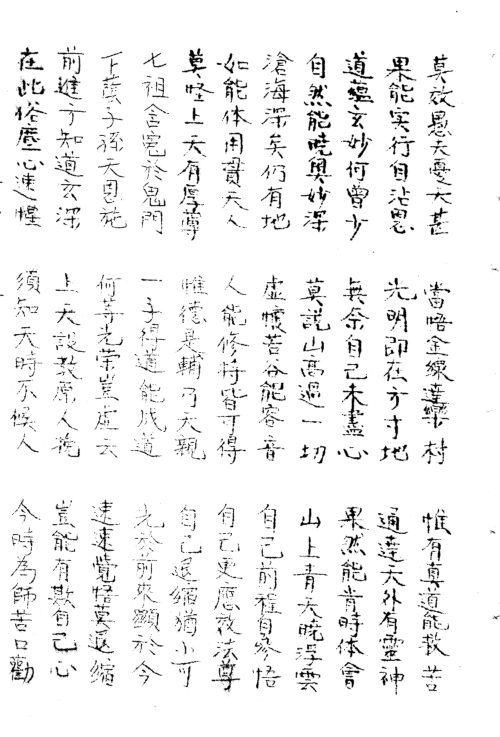 莫效愚夫憂天甚
當悟金線達欒村
惟有真道能救苦
果能實行自沾恩
光明即在方寸地
通達天外有靈神
道蘊玄妙何曾少
無奈自己未盡心
果然能肯時體會
自然能曉奧妙深
莫說山高過一切
山上青天曉浮雲
滄海深矣仍有地
虛懷若谷能容音
自己前程自參悟
如能体用貴夫人
人能修持皆可得
自己更應效法尊
莫怪上天有厚薄
惟德是輔乃天親
自己退縮猶小可
七祖含冤於鬼門
一子得道能成道
光於前來顯於今
下蔭子孫天恩施
何等光榮豈虛云
速速覺悟莫退縮
前進方知道玄深
上天設教原人挽
豈能有欺自己心
在此俗塵心速惺
須知天時不候人
今時為師苦口勸